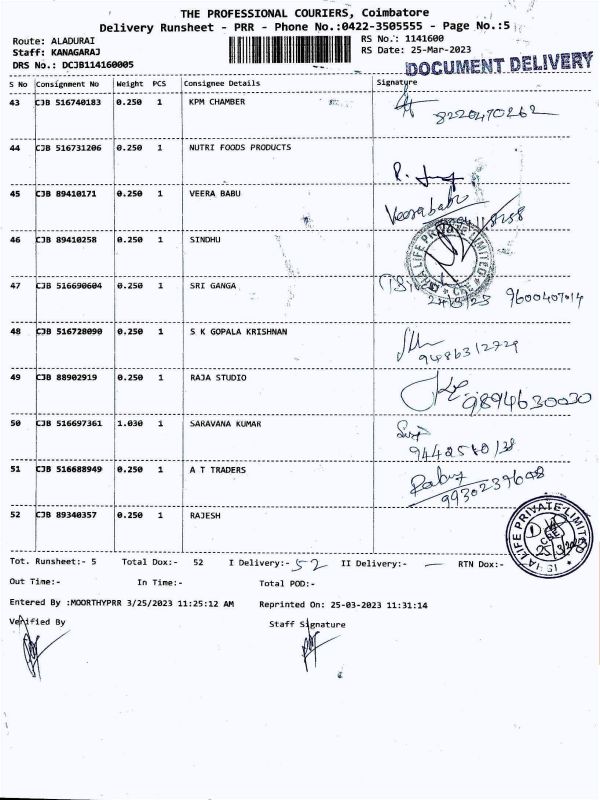 THE PROFESSIONAL COURIERS, Coimbatore
Delivery Runsheet - PRR - Phone No.:0422-3505555 - Page No.:5
Route: ALADURAI RS No.: 1141600
Staff: KANAGARAJ RS Date: 25-Mar-2023
DRS No.: DCJB114160005 DOCUMENT DELIVERY
S No Consignment No Weight PCS Consignee Details Signature
43 CJB 516740183 0.250 1 KPM CHAMBER
8220470262
44 CJB 516731206 0.250 1 NUTRI FOODS PRODUCTS
R.
45 CJB 89410171 0.250 1 VEERA BABU Veerababu
46 CJB 89410258 0.250 1 SINDHU
LIFE PRIVATE LIMITED
47 CJB 516690604 0.250 1 SRI GANGA
9600407014
48 CJB 516728090 0.250 1 S K GOPALA KRISHNAN
9486312729
49 CJB 88902919 0.250 1 RAJA STUDIO
9894630030
50 CJB 516697361 1.030 1 SARAVANA KUMAR
51 CJB 516688949 0.250 1 A T TRADERS
52 CJB 89340357 0.250 1 RAJESH
LIFE PRIVATE LIMITED
Tot. Runsheet:- 5 Total Dox:- 52 I Delivery:- 52 II Delivery:- — RTN Dox:-
Out Time:- In Time:- Total POD:-
Entered By :MOORTHYPRR 3/25/2023 11:25:12 AM Reprinted On: 25-03-2023 11:31:14
Verified By Staff Signature